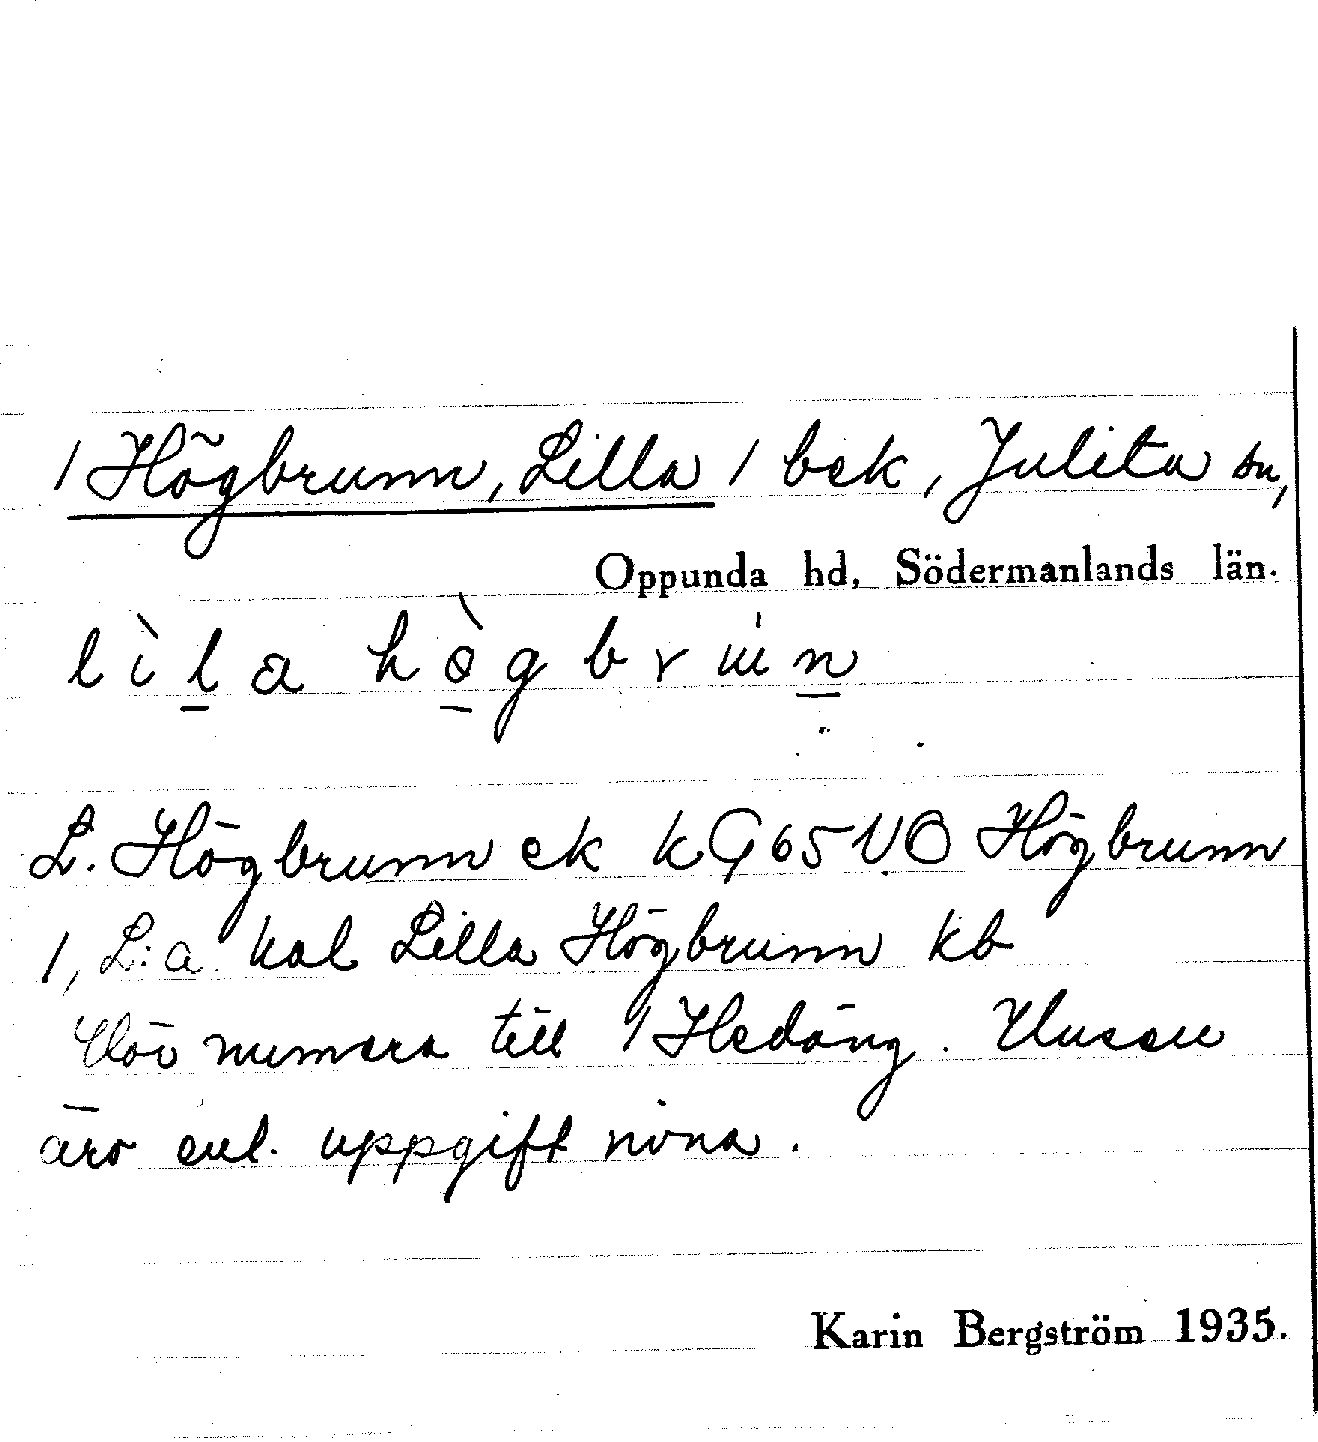 / Högbrunn, Lilla / bek, Julita sn,
Oppunda hd, Södermanlands län.
lìla hògbrun
L. Högbrunn ek kG 65 NO Högbrunn
/, L:a kal Lilla Högbrunn kb
Hör numera till / Hedäng. Husen
äro enl. uppgift rivna.
Karin Bergström 1935.